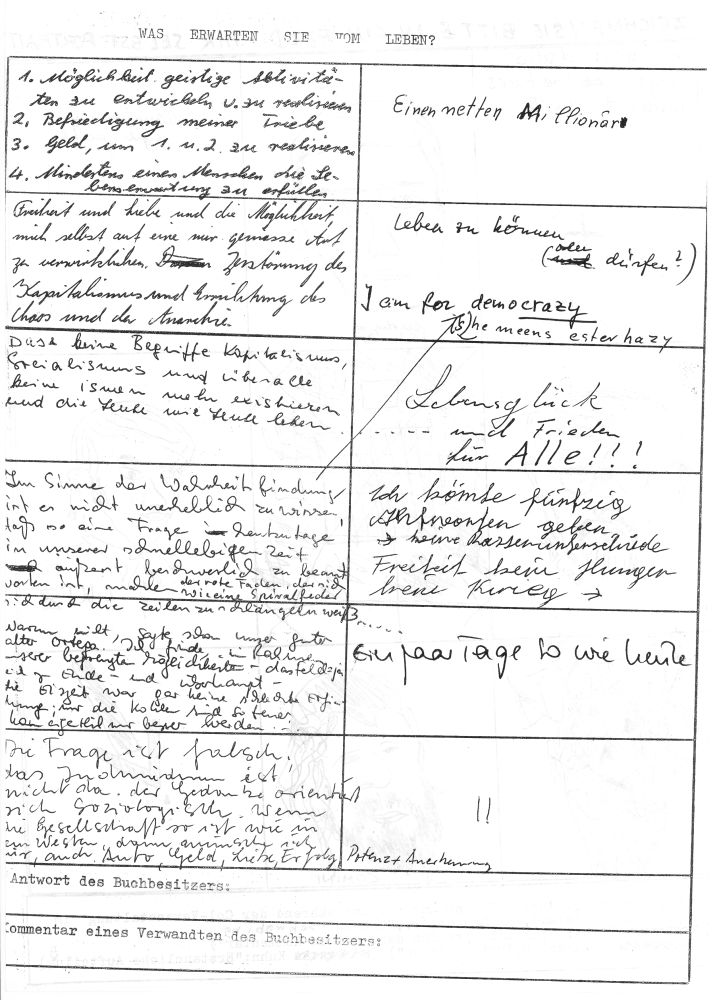 WAS ERWARTEN SIE VOM LEBEN?
1. Möglichkeit geistige Aktivitä-
ten zu entwickeln u. zu realisieren
2. Befriedigung meiner Triebe
3. Geld, um 1. u. 2. zu realisieren
4. Mindestens einen Menschen die Le-
benserwartung zu erfüllen
Einen netten Millionär
Freiheit und Liebe und die Möglichkeit,
mich selbst auf eine mir gemässe Art
zu verwirklichen. Zerstörung des
Kapitalismus und Errichtung des
Chaos und der Anarchie.
Leben zu können
(oder dürfen?)
I am for democrazy
(s)he meens esterhazy
Dass keine Begriffe Kapitalismus,
Sozialismus und überalle
keine ismen mehr existieren
und die Leute wie Leute leben
Lebensglück
...... und Frieden
für Alle!!!
Im Sinne der Wahrheitfindung
ist es nicht unerheblich zu wissen,
daß so eine Frage heutzutage
in unserer schnellebigen Zeit
äußerst beschwerlich zu beant
worten ist, der rote Faden, der sich
wie eine Spiralfeder
sich durch die Zeilen zu schlängeln weiß
Ich könnte fünfzig
Antworten geben
→ keine Rassenunterschiede
Freiheit kein Hunger
kein Krieg →
warum nicht, sagte schon unser guter
alter Ortega. Ich finde, im Rahmen
unserer begrenzten Möglichkeiten - das
ist z. Ende - und überhaupt -
die Eiszeit war gar keine schlechte Erfin-
dung, nur die Kohlen sind so teuer,
kann eigentlich nur besser werden.
Ein paar Tage so wie heute
Die Frage ist falsch.
das Individuum ist
nicht da. der Gedanke orientiert
sich soziologisch. Wenn
die Gesellschaft so ist wie im
Westen, dann wünsche ich
mir, auch Auto, Geld, Liebe, Erfolg, Potenz + Anerkennung
!!
Antwort des Buchbesitzers:
Kommentar eines Verwandten des Buchbesitzers: